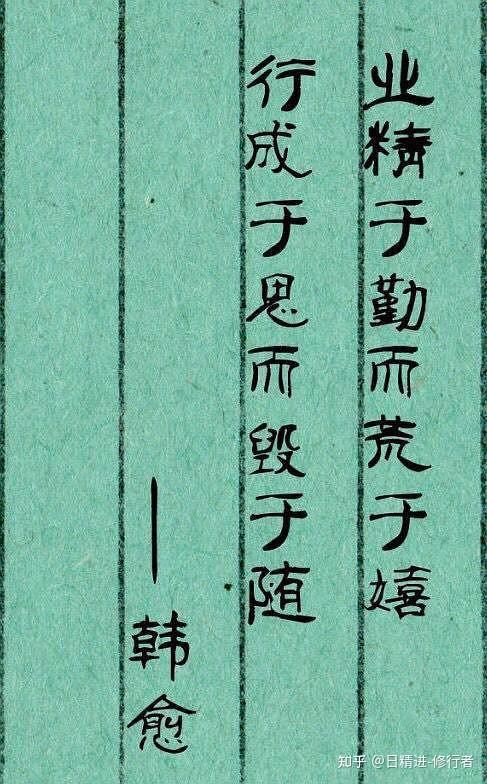 业精于勤而荒于嬉
行成于思而毁于随
—韩愈
知乎 @日精进-修行者